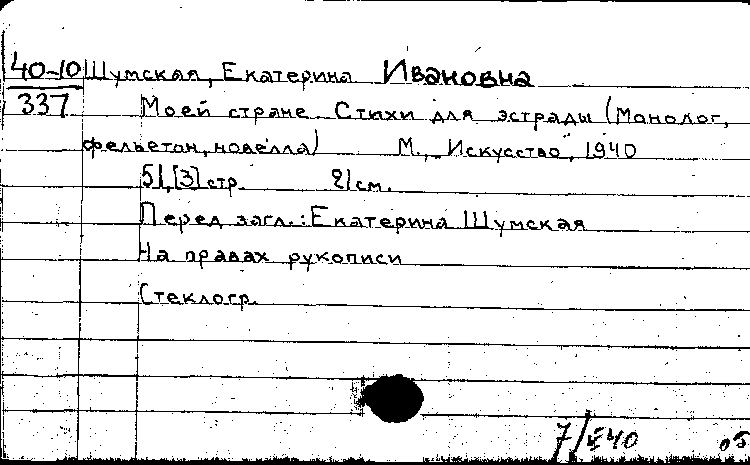 40-10 Шумская, Екатерина Ивановна
337 Моей стране. Стихи для эстрады (Монолог,
фельетон, новелла) М., „Искусство", 1940
51, [3] стр. 21 см.
Перед загл.: Екатерина Шумская
На правах рукописи
Стеклогр.